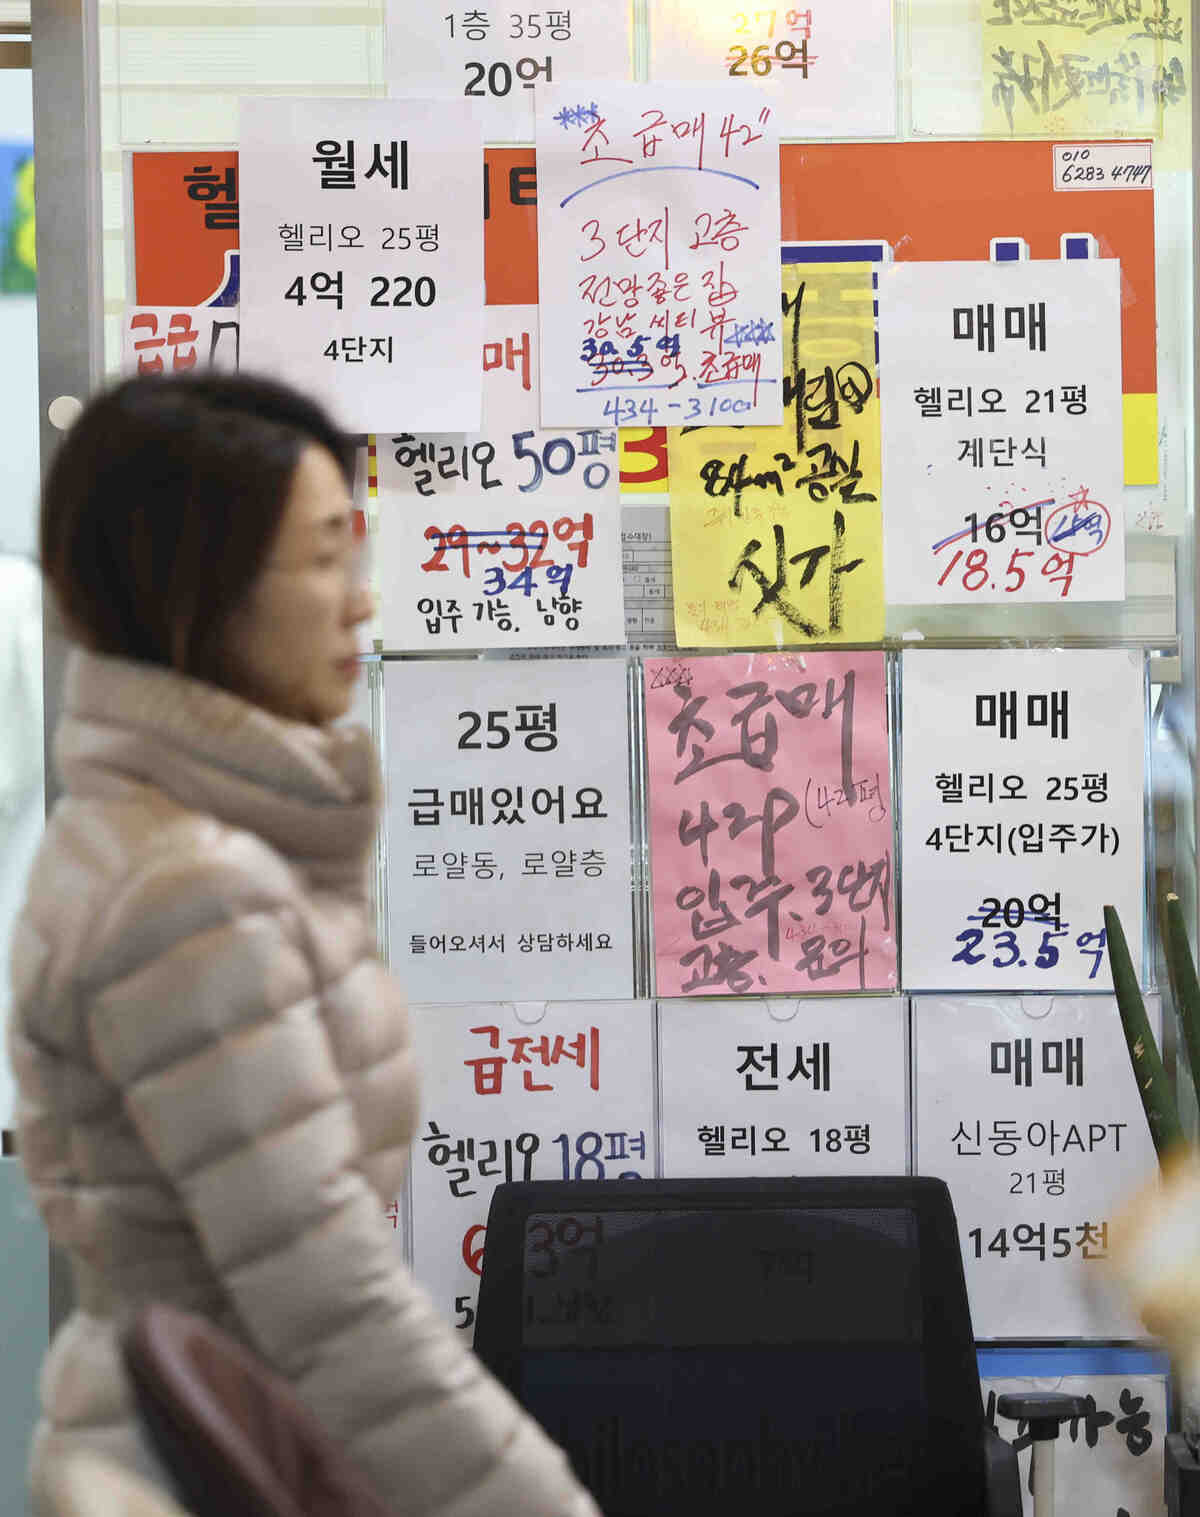 1층 35평
20억
27억
26억
010
6283 4747
월세
헬리오 25평
4억 220
4단지
초급매 42"
3단지 고층
전망좋은 집
강남 씨티 뷰
30.5억
30.3억. 초급매
434-3100
매매
헬리오 21평
계단식
16억
18.5억
급급
매
헬리오 50평
29~32억
34억
입주 가능. 남향
84m² 공실
싯가
25평
급매있어요
로얄동, 로얄층
들어오셔서 상담하세요
초급매
42P (42평
입주. 3단지
고층. 문의
매매
헬리오 25평
4단지(입주가)
20억
23.5억
급전세
헬리오 18평
3억
전세
헬리오 18평
매매
신동아APT
21평
14억5천
가능